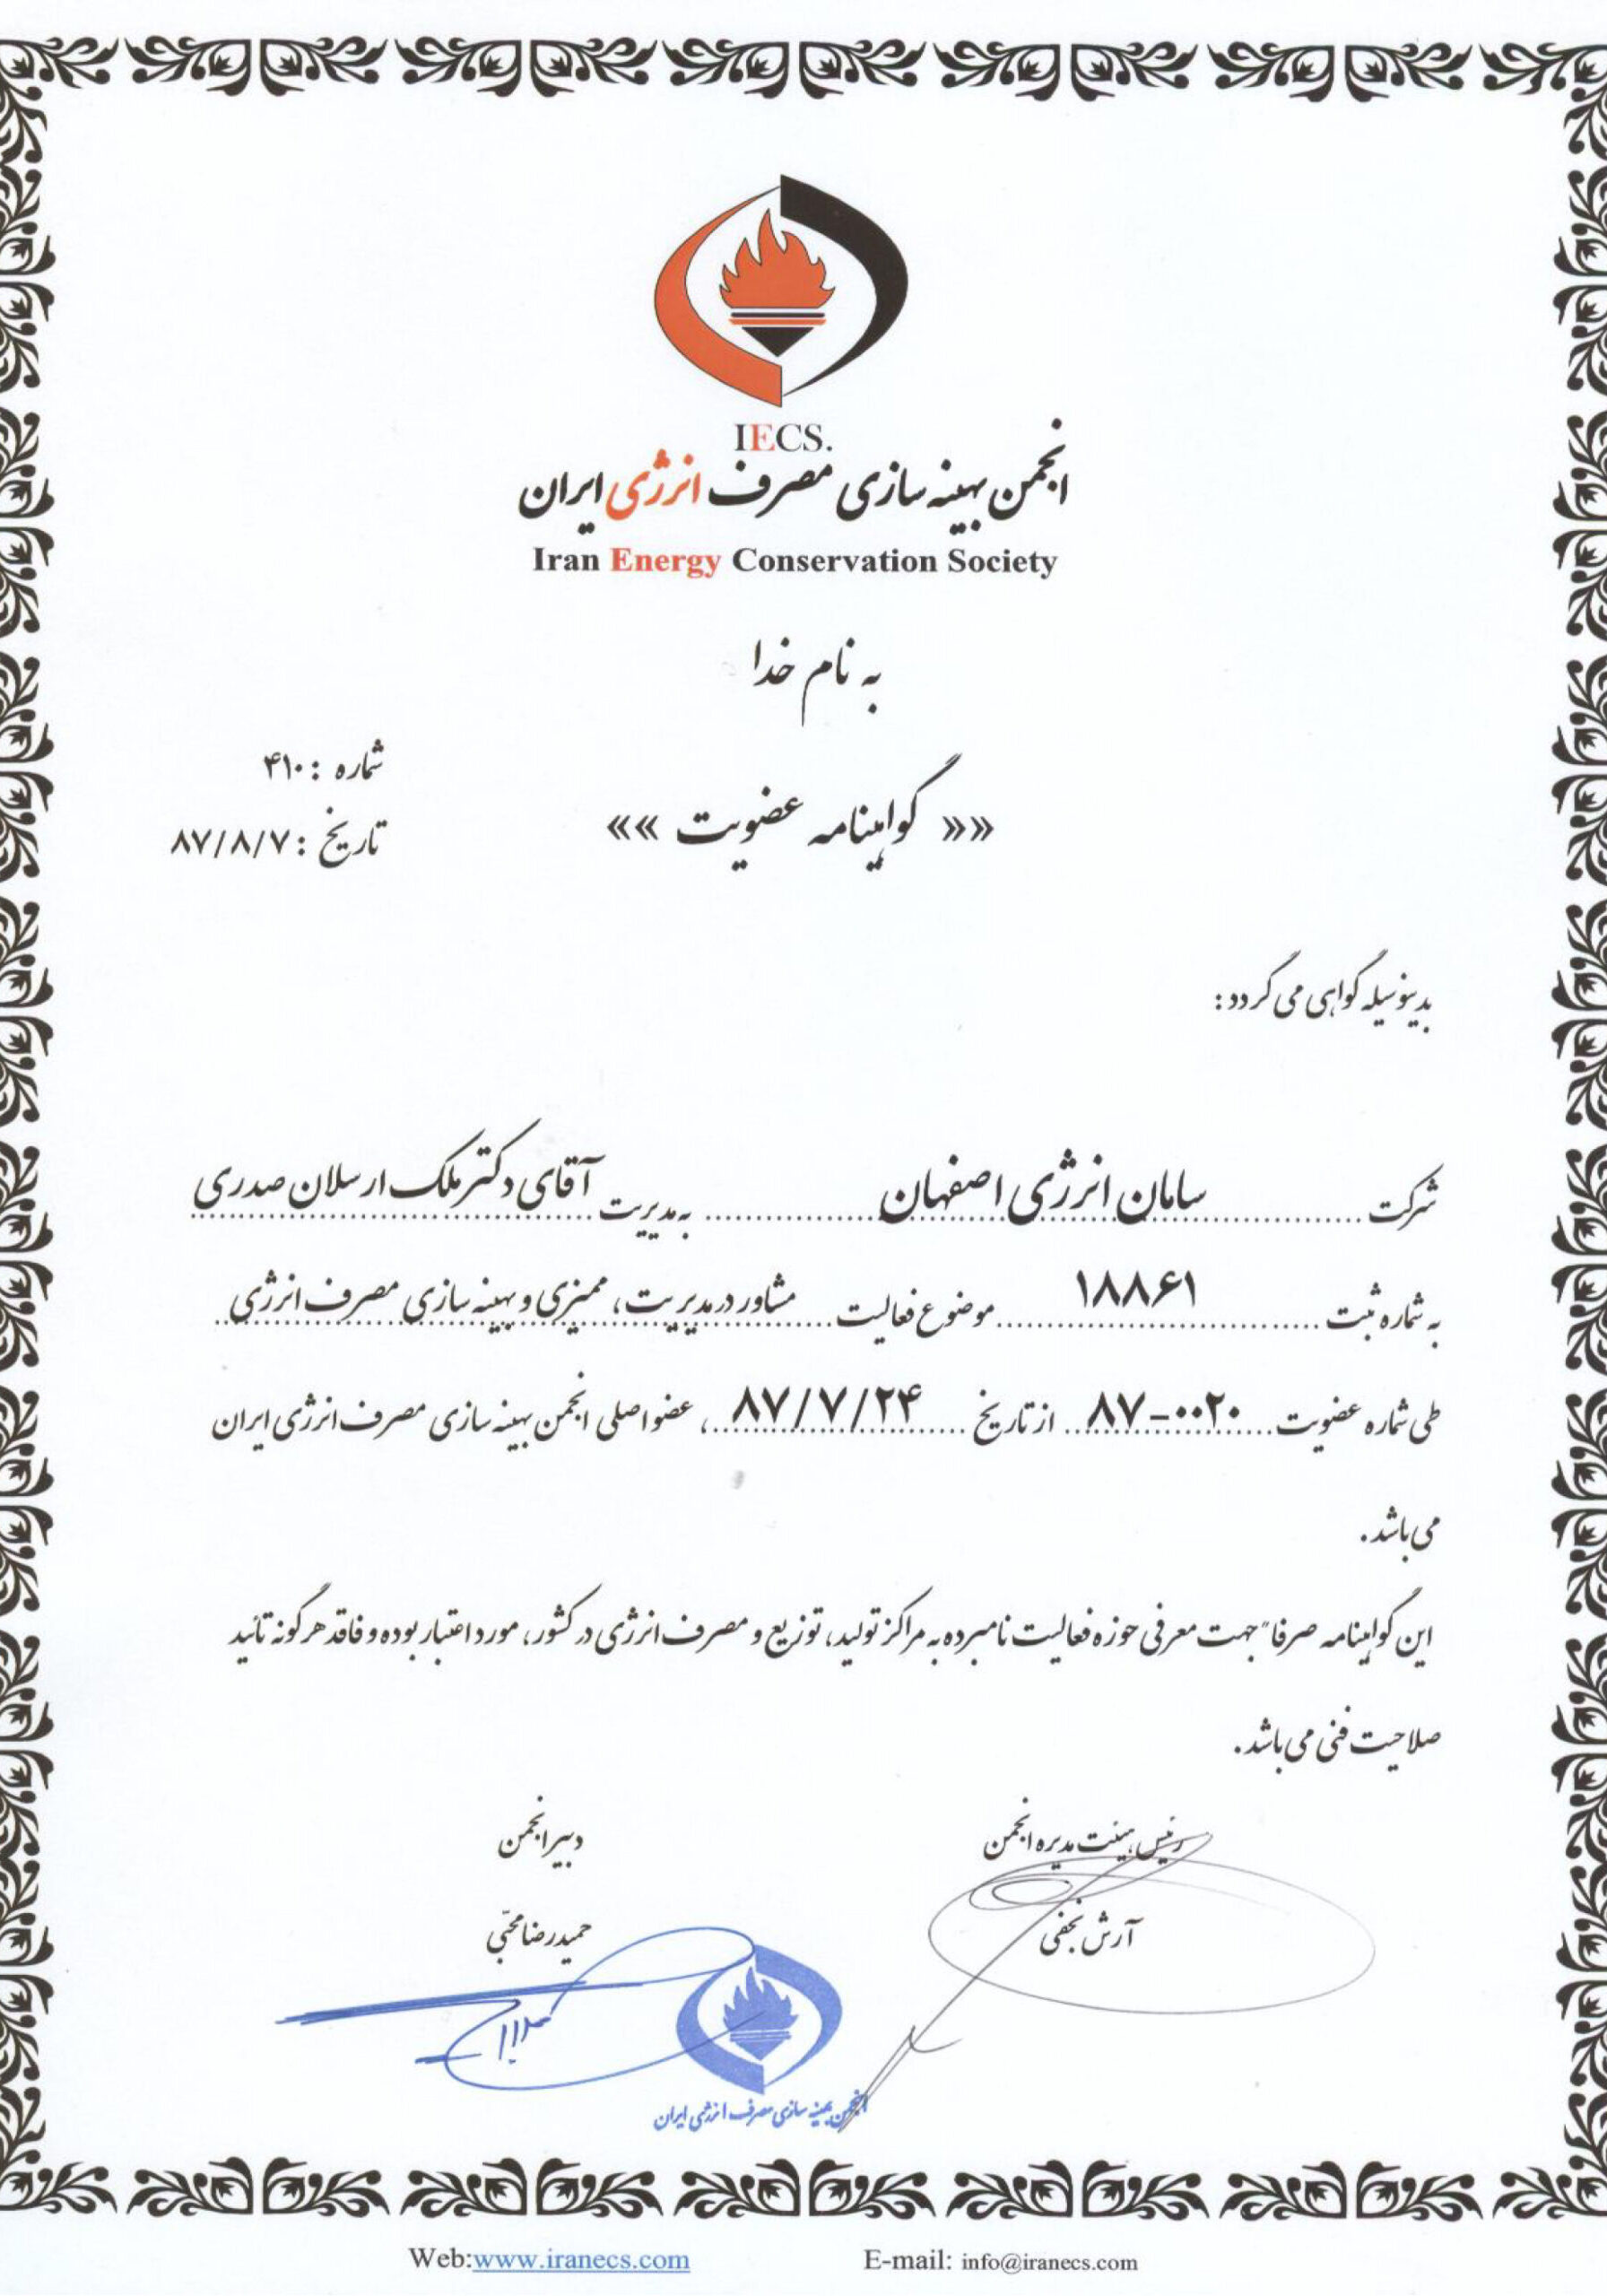 IECS.
انجمن بهینه سازی مصرف انرژی ایران
Iran Energy Conservation Society
به نام خدا
شماره : ۴۱۰
تاریخ : ۸۷/۸/۷
«« گواهینامه عضویت »»
بدینوسیله گواهی می گردد :
شرکت سامان انرژی اصفهان به مدیریت آقای دکتر ملک ارسلان صدری
به شماره ثبت ۱۸۸۶۱ موضوع فعالیت مشاور در مدیریت، ممیزی و بهینه سازی مصرف انرژی
طی شماره عضویت ۸۷-۰۰۲۰ از تاریخ ۸۷/۷/۲۴ ، عضو اصلی انجمن بهینه سازی مصرف انرژی ایران
می باشد .
این گواهینامه صرفا" جهت معرفی حوزه فعالیت نامبرده به مراکز تولید، توزیع و مصرف انرژی در کشور، مورد اعتبار بوده و فاقد هر گونه تائید
صلاحیت فنی می باشد .
رئیس هیئت مدیره انجمن
دبیر انجمن
آرش نجفی
حمیدرضا محبّی
انجمن بهینه سازی مصرف انرژی ایران
Web:www.iranecs.com
E-mail: info@iranecs.com